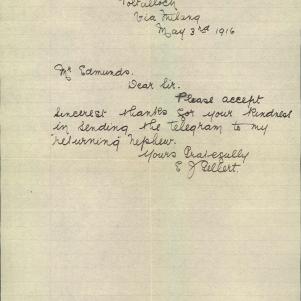 Via Milang
May 3rd 1916
Mr Edmunds.
Dear Sir.
Please accept
sincerest thanks for your kindness
in sending the telegram to my
returning nephew.
Yours Gratefully
E J Gellert.